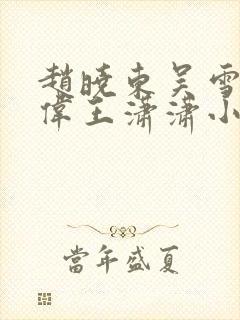 趙曉東吳雪
偉王瀟瀟小
當年盛夏